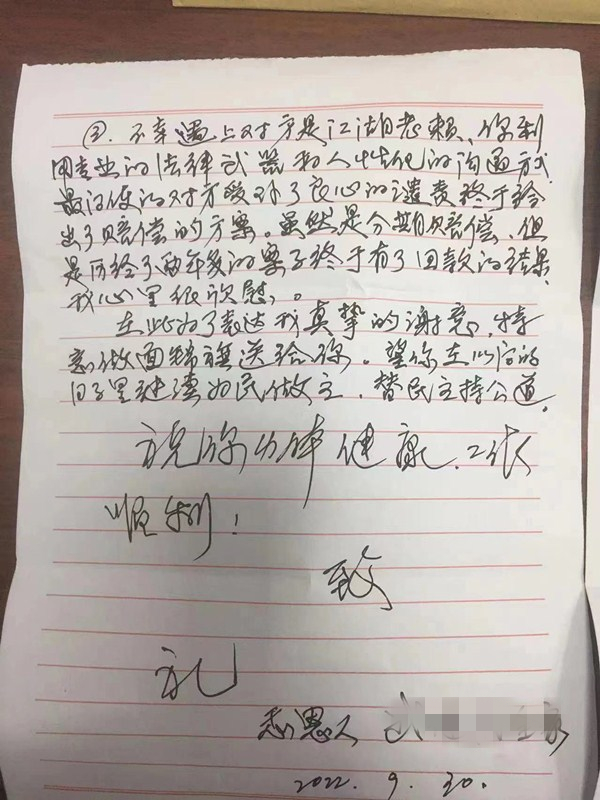 ③.不幸遇上对方是江湖老赖、你利
用专业的法律武器和人性化的沟通方式
最终使的对方受到了良心的谴责终于给
出了赔偿的方案。虽然是分期赔偿、但
是历经了两年多的案子终于有了回款的结果、
我心里很欣慰。
在此为了表达我真挚的谢意,特
意做面锦旗送给你。望你在以后的
日子里继续为民做主、替民主持公道。
祝你身体健康、工作
顺利!
致
礼
感恩人
2022.9.30.